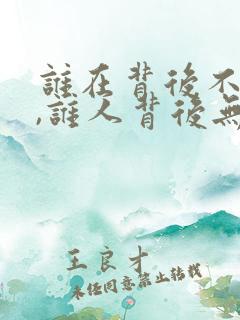 誰在背後不
,誰人背後無
王良才
未經同意禁止轉載